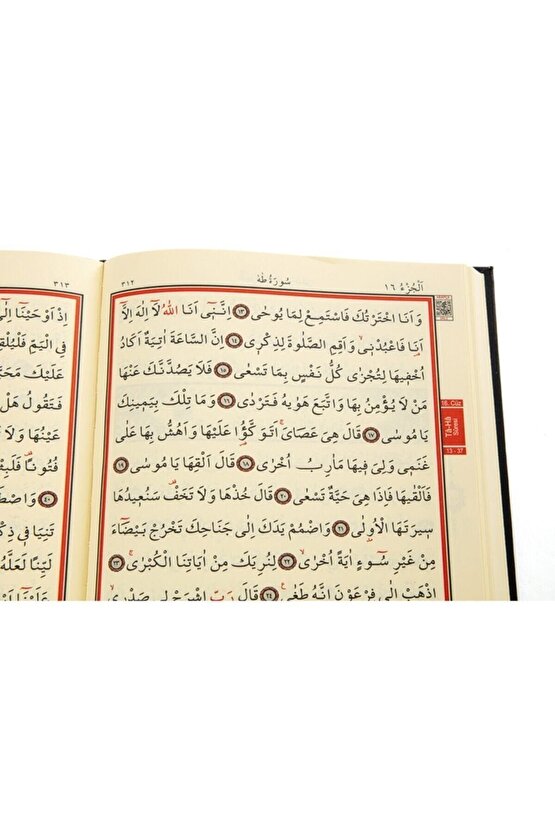 اَلْجُزْءُ ١٦ سُورَةُ طٰهٰ ٣١٢
وَاَنَا اخْتَرْتُكَ فَاسْتَمِعْ لِمَا يُوحٰى ١٣ اِنَّنٖٓي اَنَا اللّٰهُ لَٓا اِلٰهَ اِلَّٓا
اَنَا فَاعْبُدْنٖيۙ وَاَقِمِ الصَّلٰوةَ لِذِكْرٖي ١٤ اِنَّ السَّاعَةَ اٰتِيَةٌ اَكَادُ
اُخْفٖيهَا لِتُجْزٰى كُلُّ نَفْسٍ بِمَا تَسْعٰى ١٥ فَلَا يَصُدَّنَّكَ عَنْهَا
مَنْ لَا يُؤْمِنُ بِهَا وَاتَّبَعَ هَوٰيهُ فَتَرْدٰى ١٦ وَمَا تِلْكَ بِيَمٖينِكَ
يَا مُوسٰى ١٧ قَالَ هِيَ عَصَايَۚ اَتَوَكَّؤُ۬ا عَلَيْهَا وَاَهُشُّ بِهَا عَلٰى
غَنَمٖي وَلِيَ فٖيهَا مَاٰرِبُ اُخْرٰى ١٨ قَالَ اَلْقِهَا يَا مُوسٰى ١٩
فَاَلْقٰيهَا فَاِذَا هِيَ حَيَّةٌ تَسْعٰى ٢٠ قَالَ خُذْهَا وَلَا تَخَفْ۠ سَنُعٖيدُهَا
سٖيرَتَهَا الْاُو۫لٰى ٢١ وَاضْمُمْ يَدَكَ اِلٰى جَنَاحِكَ تَخْرُجْ بَيْضَٓاءَ
مِنْ غَيْرِ سُٓوءٍ اٰيَةً اُخْرٰىۙ ٢٢ لِنُرِيَكَ مِنْ اٰيَاتِنَا الْكُبْرٰىۚ ٢٣
اِذْهَبْ اِلٰى فِرْعَوْنَ اِنَّهُ طَغٰى۟ ٢٤ قَالَ رَبِّ اشْرَحْ لٖي صَدْرٖيۙ
16. Cüz
Tâ-Hâ
Sûresi
13 - 37
٣١٣
اِذْ اَوْحَيْنَٓا اِلٰٓى
فِي الْيَمِّ فَلْيُلْقِ
عَلَيْكَ
فَتَقُولُ هَلْ
عَيْنُهَا وَلَا
فُتُونًا
٤٠
تَنِيَا فٖي
لَيِّنًا لَعَلَّهُ
عَلَيْنَٓا